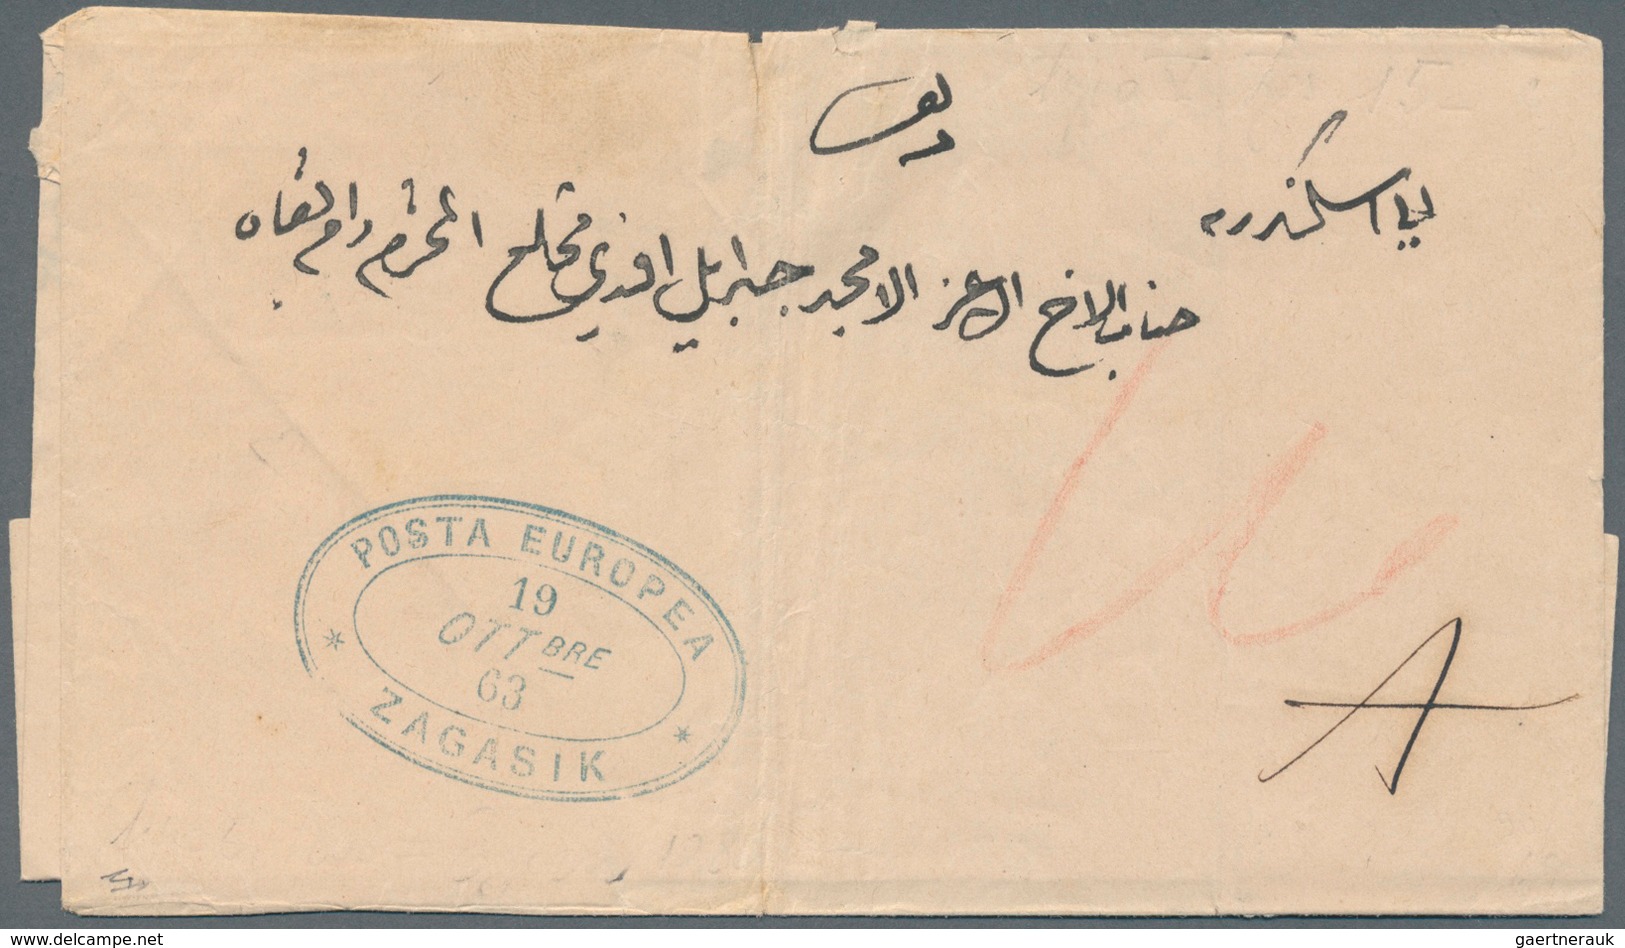 الي اسكندريه
جناب الاخ الاعز الامجد جبرائيل افندي مخلع المحترم دام بقاه
POSTA EUROPEA
19
OTTBRE
63
ZAGASIK
A
delcampe.net
gaertnerauk